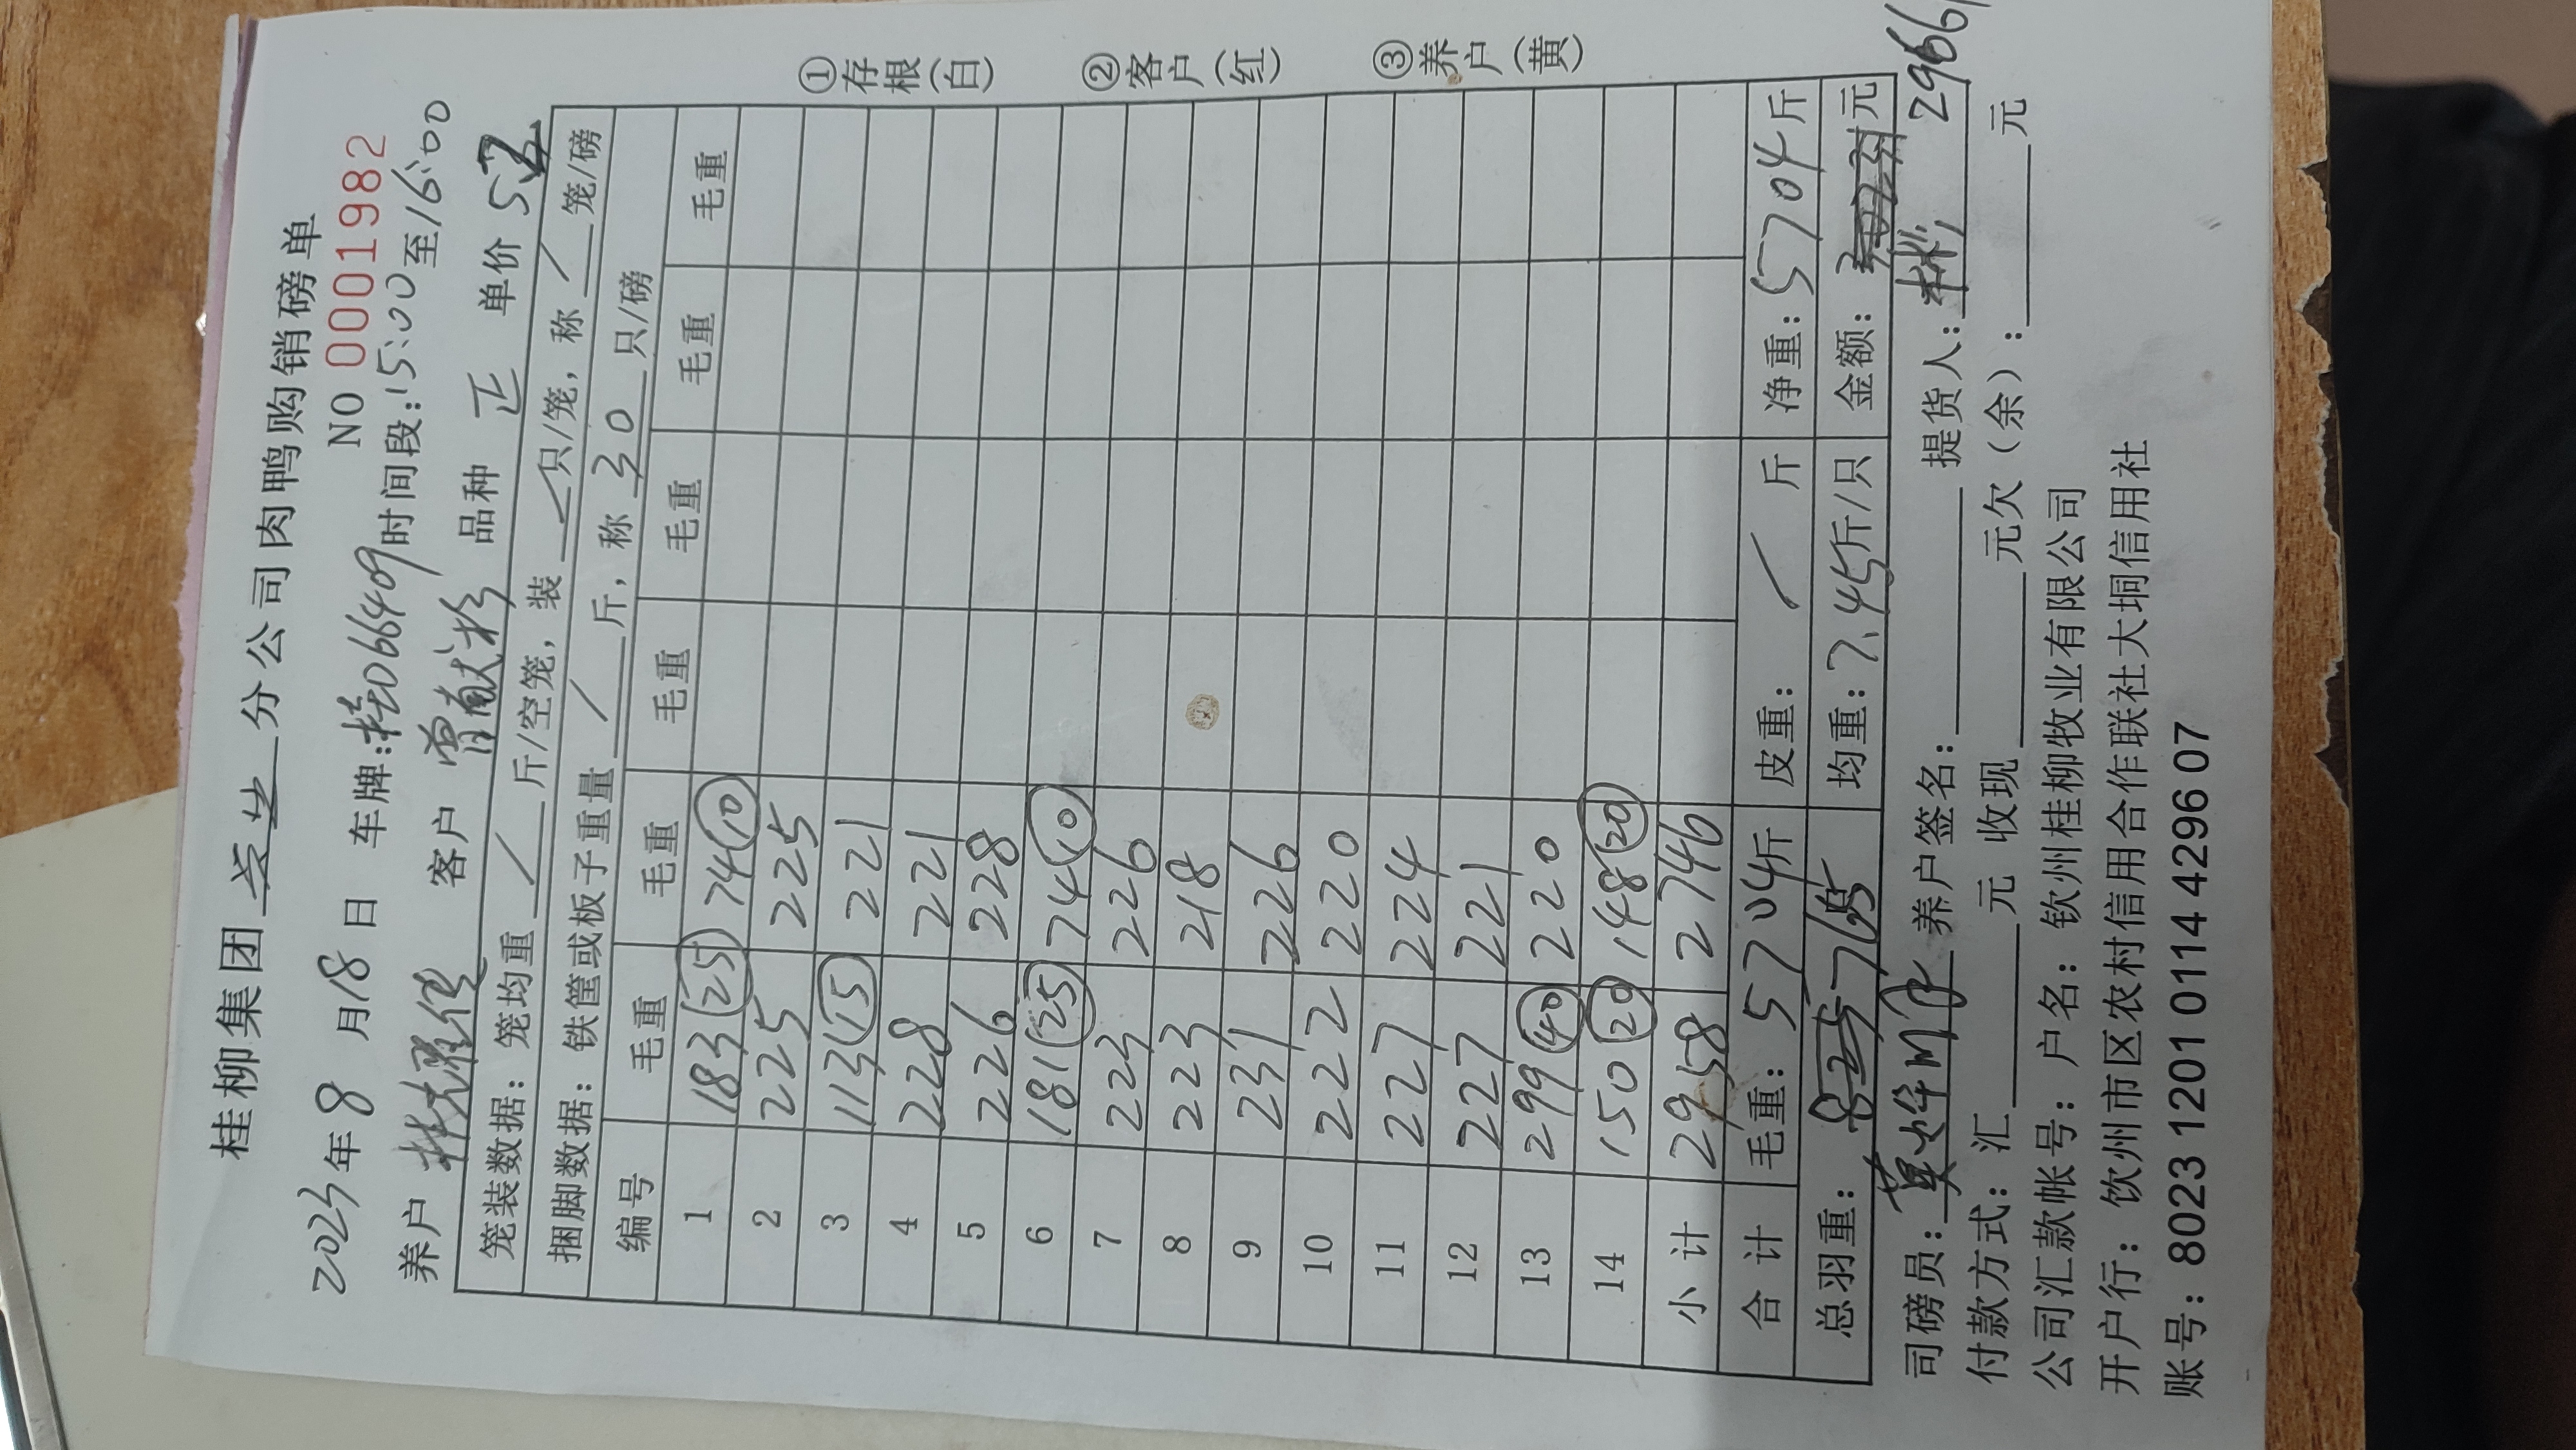 桂柳集团 分公司肉鸭购销磅单
NO 0001982
2023年8月18日 车牌:桂D66409 时间段:15:00至16:00
养户 客户 曾献 品种 正 单价 5.2
笼装数据：笼均重 / 斤/空笼，装 / 只/笼，称 / 笼/磅
捆脚数据：铁筐或板子重量 / 斤，称 30 只/磅
编号 毛重 毛重 毛重 毛重 毛重 毛重
1 183 (25) 74 (10)
2 225 225
3 113 (15) 221
4 228 221
5 226 228
6 181 (25) 74 (10)
7 223 226
8 223 218
9 231 226
10 222 220
11 227 224
12 227 221
13 299 (40) 220
14 150 (20) 148 (20)
小计 2958 2746
合计 毛重：5704斤 皮重：/ 斤 净重：5704斤
总羽重：765 均重：7.45斤/只 金额： 元
2966
司磅员： 养户签名： 提货人：
付款方式：汇 元 收现 元欠（余）： 元
公司汇款帐号：户名：钦州桂柳牧业有限公司
开户行：钦州市区农村信用合作联社大垌信用社
账号：8023 1201 0114 4296 07
①存根(白)
②客户(红)
③养户(黄)